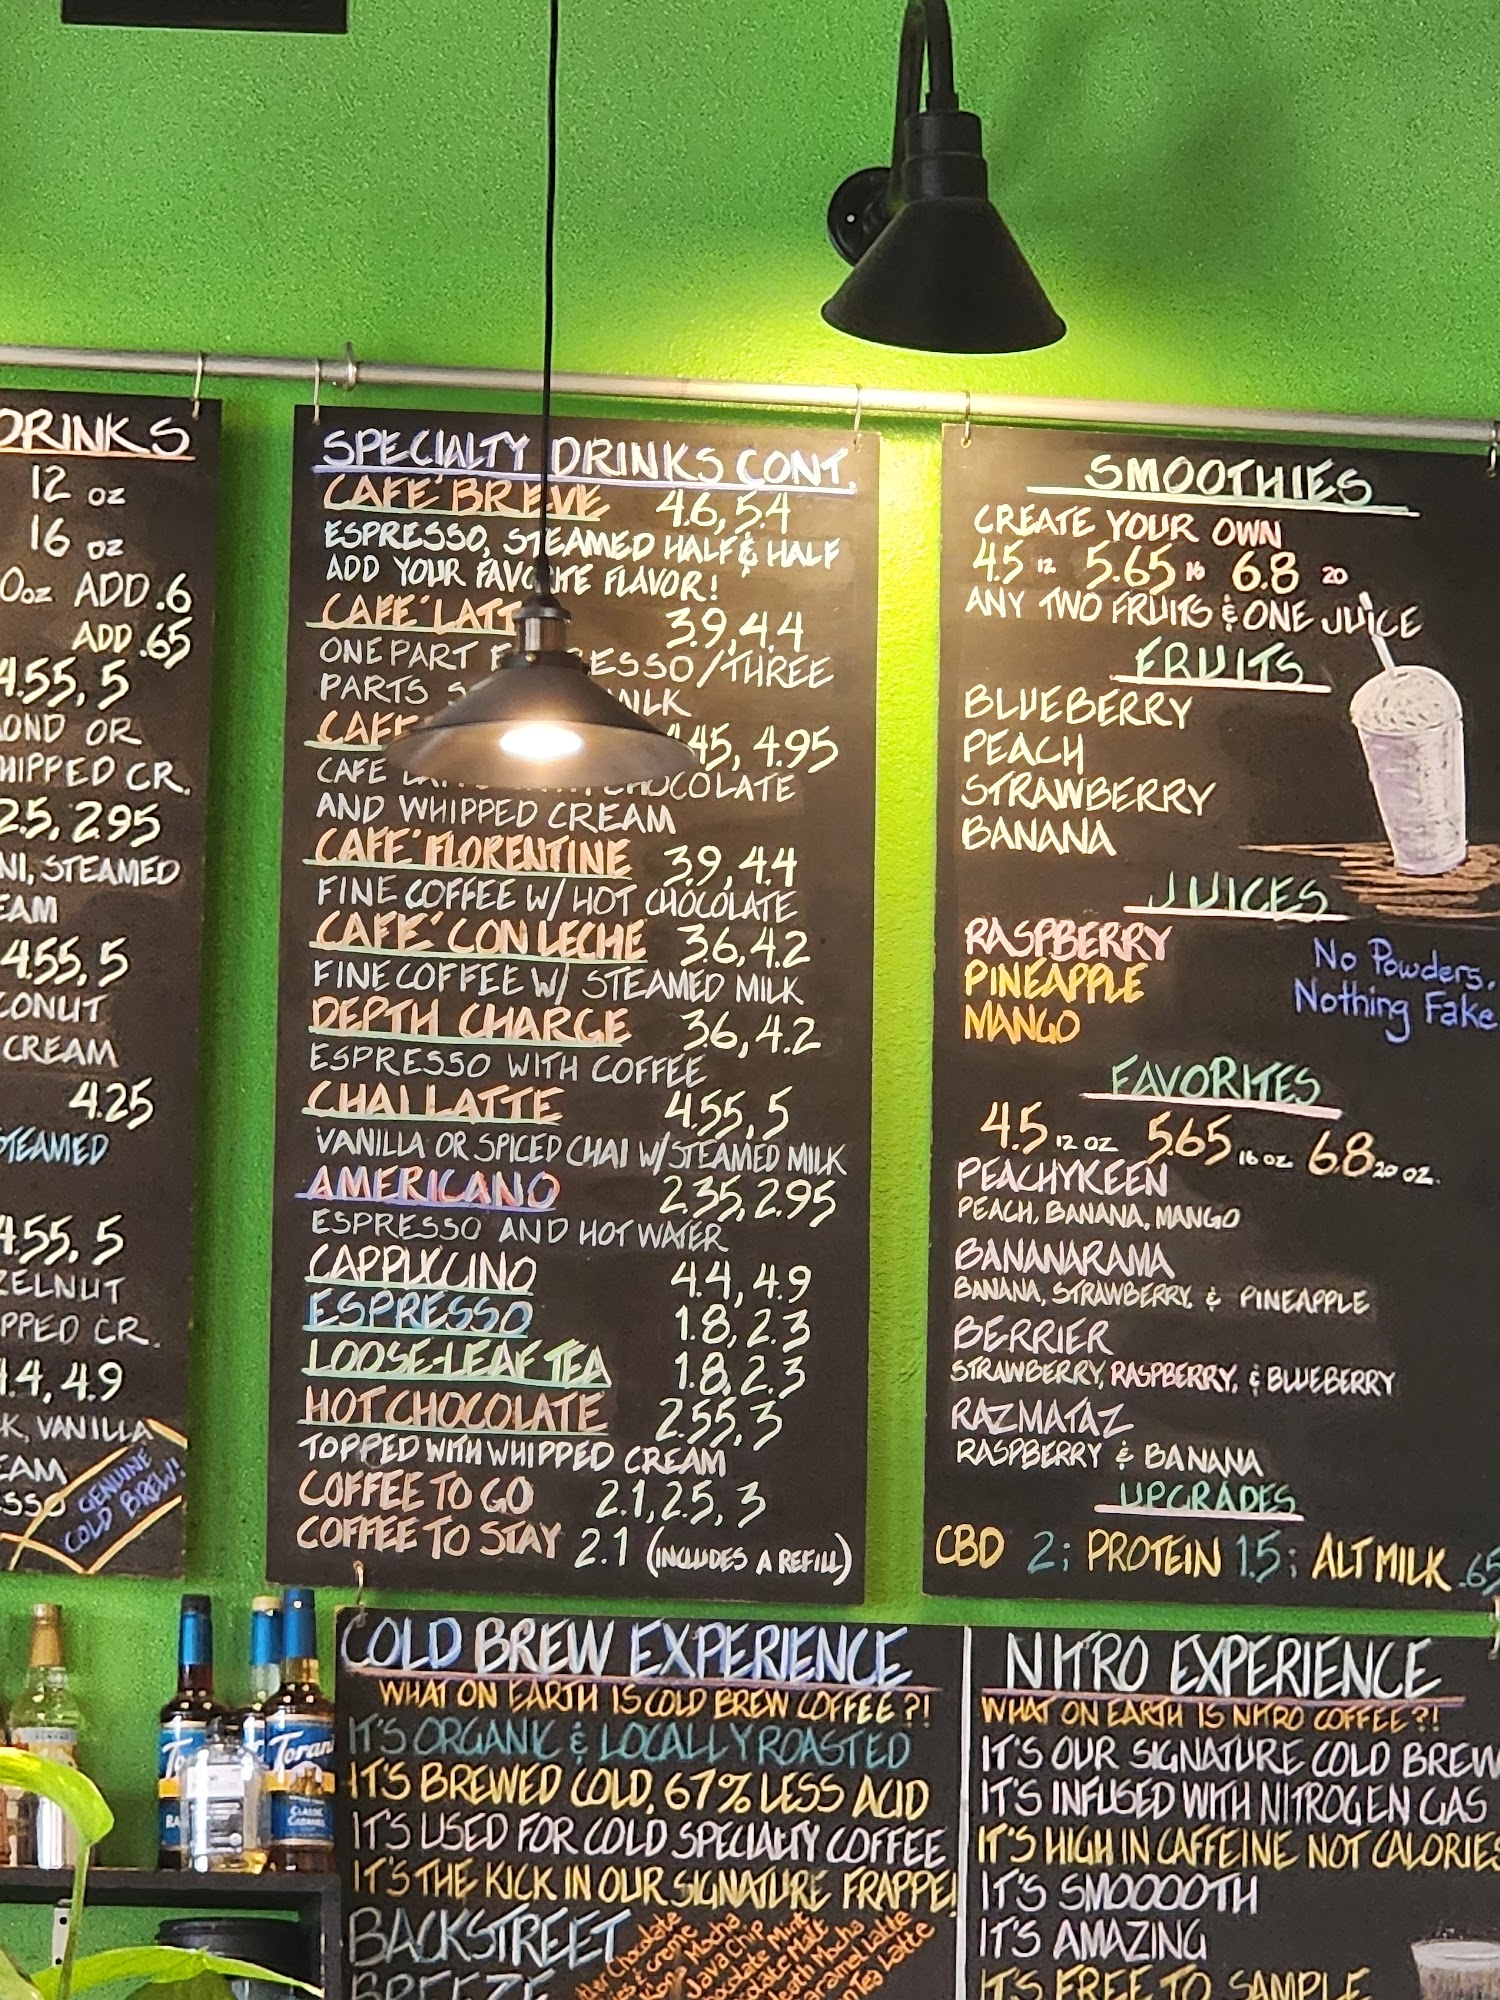 DRINKS
12 oz
16 oz
0oz ADD .6
ADD .65
4.55, 5
OND OR
HIPPED CR.
2.5, 2.95
NI, STEAMED
EAM
4.55, 5
CONUT
CREAM
4.25
STEAMED
4.55, 5
ZELNUT
PPED CR.
4.4, 4.9
K, VANILLA
EAM
ESSO
GENUINE
COLD BREW!
SPECIALTY DRINKS CONT.
CAFE' BREVE 4.6, 5.4
ESPRESSO, STEAMED HALF & HALF
ADD YOUR FAVORITE FLAVOR!
CAFE' LATT 3.9, 4.4
ONE PART ESPRESSO/THREE
PARTS S MILK
CAFE 4.45, 4.95
CAFE CHOCOLATE
AND WHIPPED CREAM
CAFE' FLORENTINE 3.9, 4.4
FINE COFFEE W/ HOT CHOCOLATE
CAFE' CON LECHE 3.6, 4.2
FINE COFFEE W/ STEAMED MILK
DEPTH CHARGE 3.6, 4.2
ESPRESSO WITH COFFEE
CHAI LATTE 4.55, 5
VANILLA OR SPICED CHAI W/STEAMED MILK
AMERICANO 2.35, 2.95
ESPRESSO AND HOT WATER
CAPPUCCINO 4.4, 4.9
ESPRESSO 1.8, 2.3
LOOSE-LEAF TEA 1.8, 2.3
HOT CHOCOLATE 2.55, 3
TOPPED WITH WHIPPED CREAM
COFFEE TO GO 2.1, 2.5, 3
COFFEE TO STAY 2.1 (INCLUDES A REFILL)
SMOOTHIES
CREATE YOUR OWN
4.5 12 5.65 16 6.8 20
ANY TWO FRUITS & ONE JUICE
FRUITS
BLUEBERRY
PEACH
STRAWBERRY
BANANA
JUICES
RASPBERRY
PINEAPPLE
MANGO
No Powders.
Nothing Fake
FAVORITES
4.5 12 OZ 5.65 16 OZ 6.8 20 OZ.
PEACHYKEEN
PEACH, BANANA, MANGO
BANANARAMA
BANANA, STRAWBERRY, & PINEAPPLE
BERRIER
STRAWBERRY, RASPBERRY, & BLUEBERRY
RAZMATAZ
RASPBERRY & BANANA
UPGRADES
CBD 2; PROTEIN 1.5; ALT MILK .65
COLD BREW EXPERIENCE
WHAT ON EARTH IS COLD BREW COFFEE?!
IT'S ORGANIC & LOCALLY ROASTED
IT'S BREWED COLD, 67% LESS ACID
IT'S USED FOR COLD SPECIALTY COFFEE
IT'S THE KICK IN OUR SIGNATURE FRAPPE!
BACKSTREET
BREEZE
Chocolate
creme
Mocha
Java Chip
Chocolate Mint
Malt
Death Mocha
Caramel Latte
Tea Latte
NITRO EXPERIENCE
WHAT ON EARTH IS NITRO COFFEE?!
IT'S OUR SIGNATURE COLD BREW
IT'S INFUSED WITH NITROGEN GAS
IT'S HIGH IN CAFFEINE NOT CALORIES
IT'S SMOOOOTH
IT'S AMAZING
IT'S FREE TO SAMPLE
Torani
CLASSIC
CARAMEL